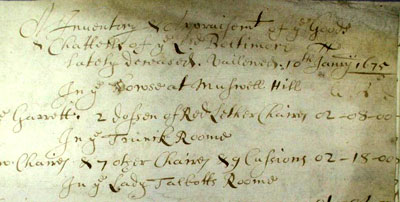 A Inventory & Apraisemt of ye Goods
& Chattells of ye Ld Baltimore
lately deceased. Vallened. 10th Janry 1675
In ye Howse at Muswell Hill
ye Garrett. 2 dossen of Red Lether Chaires 02-08-00
In ye Trunk Roome
Chaires & 7 other Chaires & 9 Cussions 02-18-00
In ye Lady Talbotts Roome